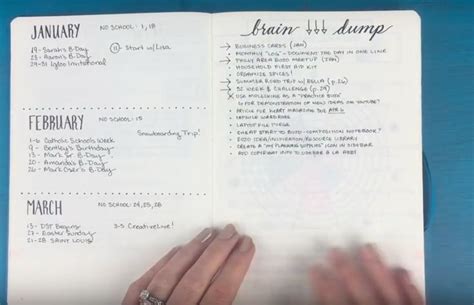 JANUARY NO SCHOOL: 1, 18
19- Sarah's B-Day
23- Aaron's B-Day
29-31 Igloo Invitational
11 Start w/ Lisa
FEBRUARY NO SCHOOL: 15
Snowboarding Trip!
1-6 Catholic Schools Week
9- Bentley's Birthday
13- Mark Sr. B-Day
20- Amanda's B-Day
26- Mark User's B-Day
MARCH NO SCHOOL: 24, 25, 28
13- DST Begins
27- Easter Sunday
21-28 SAINT LOUIS!
3-5 CreativeLive!
brain ↓↓↓ dump
BUSINESS CARDS (JAN)
MONTHLY "LOG" - DOCUMENT THE DAY IN ONE LINE
DAILY AREA BUJO MEETUP (JAN)
HOUSEHOLD FIRST AID KIT
ORGANIZE SPICES!
SUMMER ROAD TRIP w/ BELLA (p.26)
52 WEEK $ CHALLENGE (p.29)
USE MOLESKINE AS A "PRACTICE BUJO"
FOR DEMONSTRATION OF NEW IDEAS ON YOUTUBE?
ARTICLE FOR HEART MAGAZINE DUE APR 6
CAPSULE WARDROBE
LAPTOP FILE PURGE
CHEAP START TO BUJO - COMPOSITION NOTEBOOK?
BUJO IDEA/INSPIRATION/RESOURCE LIBRARY
CREATE A "MY PLANNING SUPPLIES" ICON IN SIDEBAR
ADD COPYRIGHT INFO TO SIDEBAR